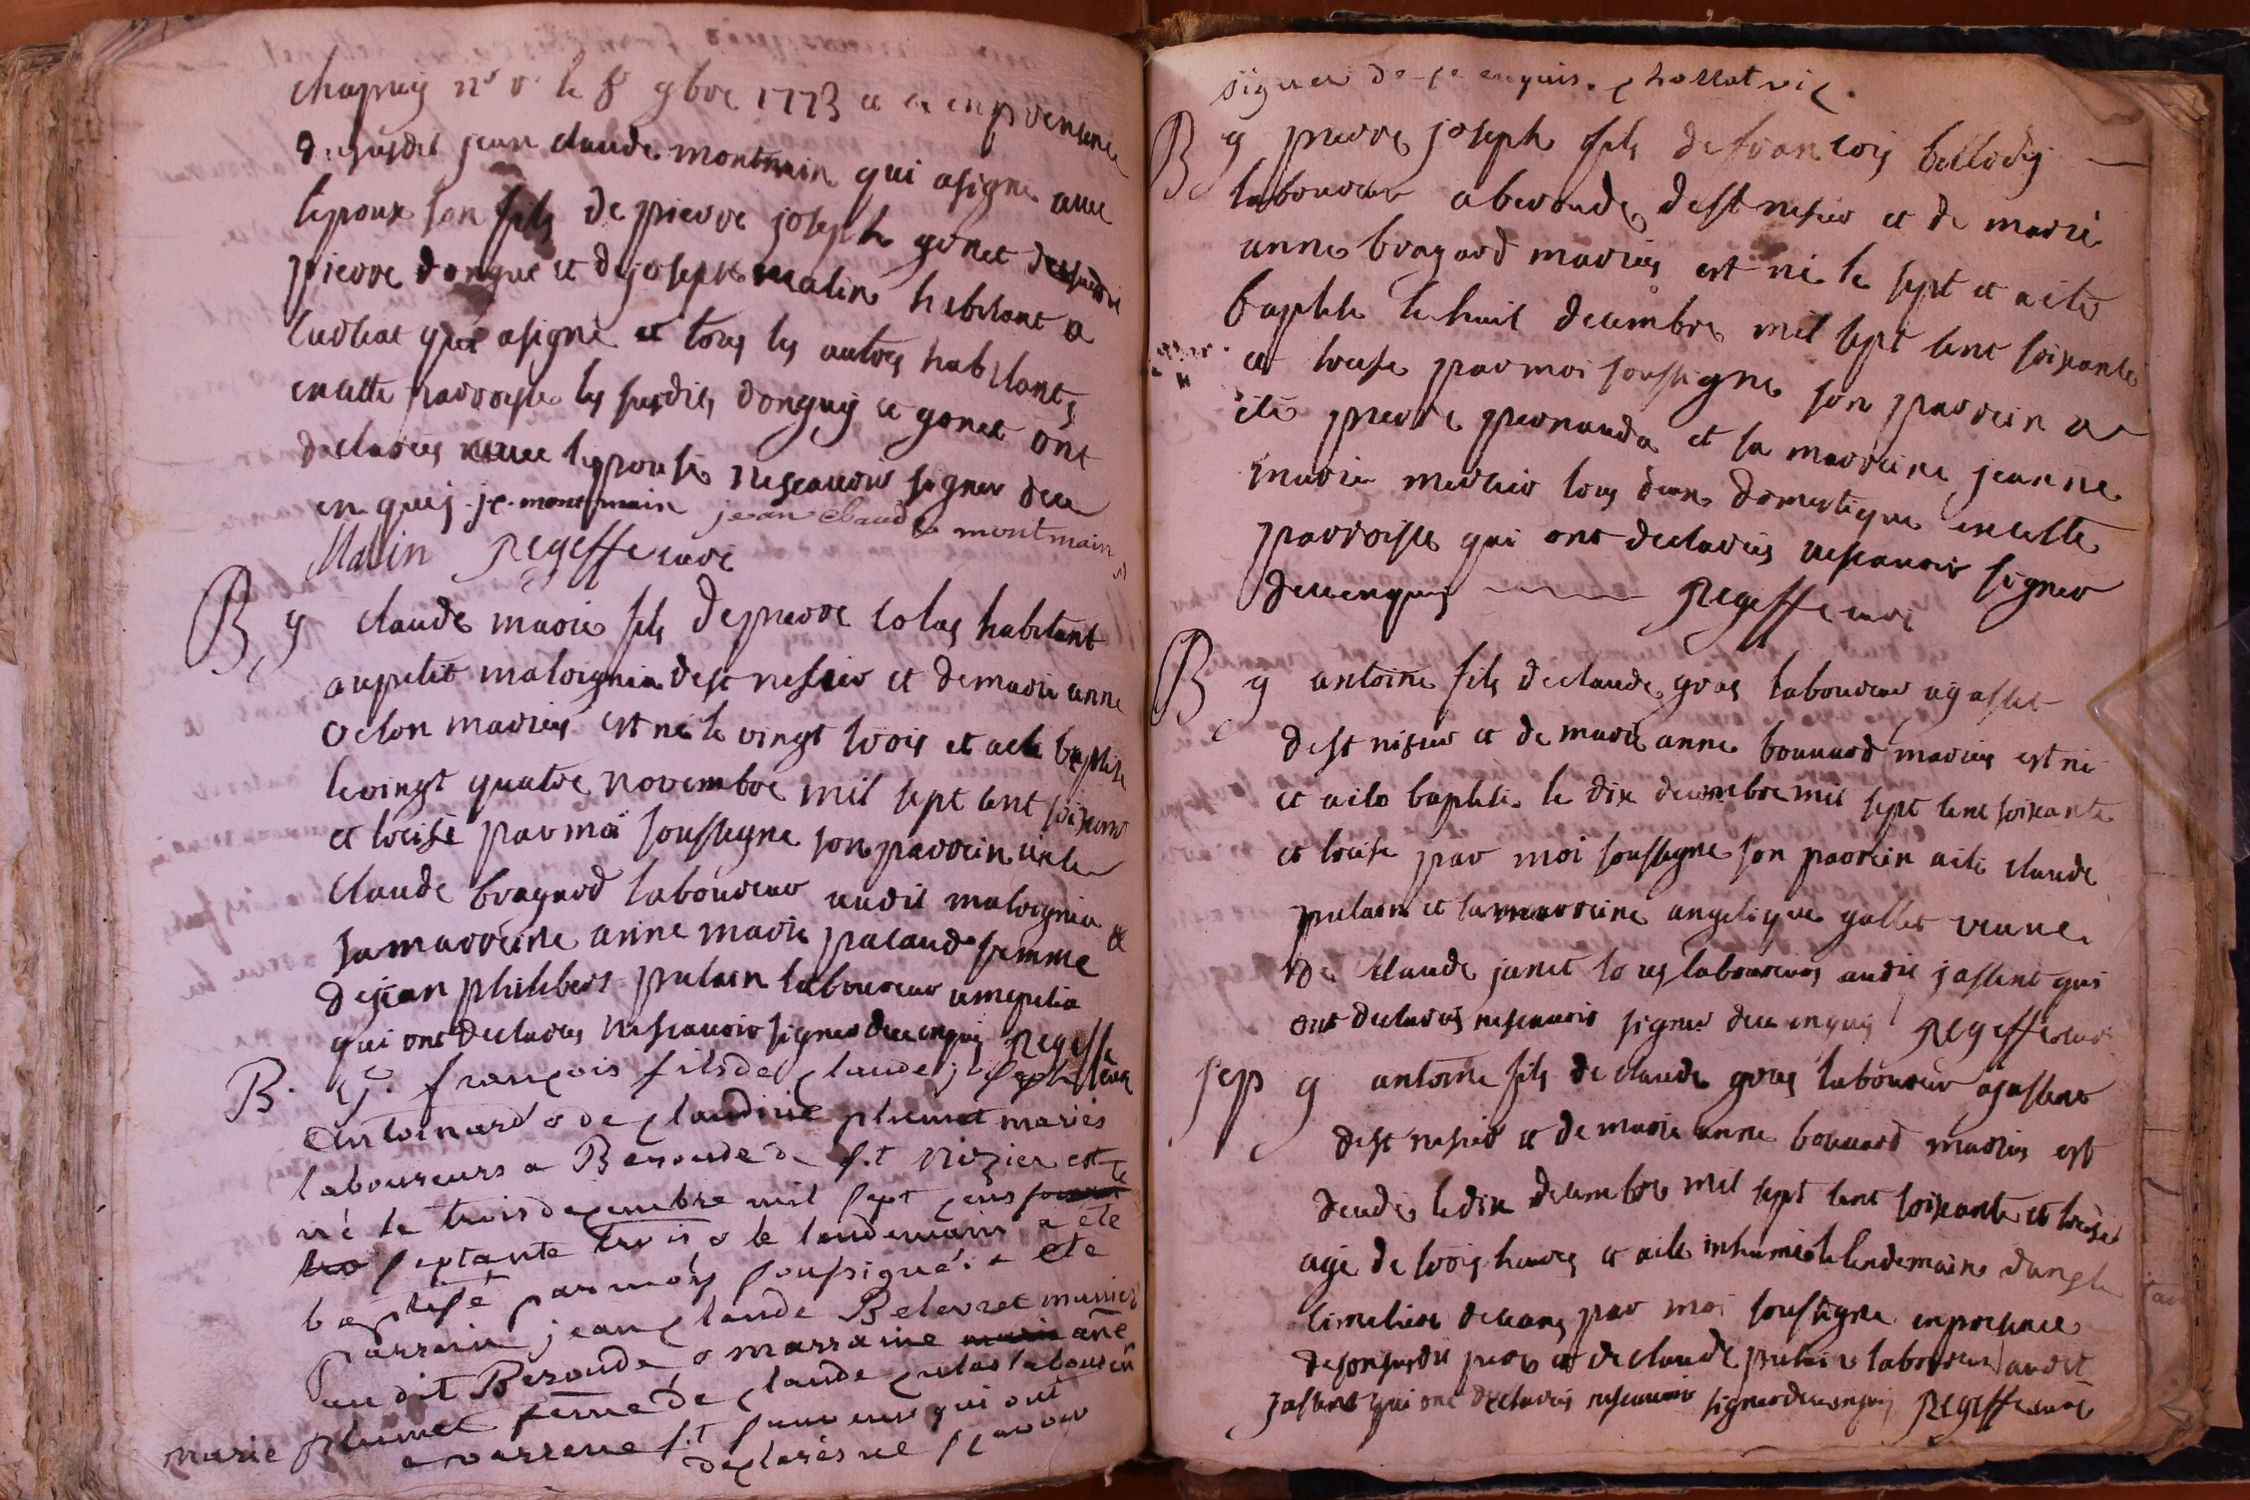 chapuy nº r. le 8 9bre 1773 et ce en presence
du susdit jean claude montmain qui a signe avec
lepoux son fils de pierre joseph gonet
pierre donguè et de joseph malin habitant a
qui a signè et tous les autres habitants
en cette parroisse les susdits donguy et gonet ont
declarès avec lepouse ne scavoir signer de ce
enquis. je. montmain jean claude montmain
Malin Regeffe curè
B g claude marie fils de pierre colas habitant
au petit maloignia de st nesier et de marie anne
velon marièes est nè le vingt trois et a ete baptise
le vingt quatre novembre mil sept cent soixante
et treise par moi soussigne son parrein
claude bragard laboureur audit maloignia &
sa marreine anne marie pacaud femme
de jean philibert pulain laboureur
qui ont declarès ne scavoir signer de ce enquis Regeffe
curè
B. g. françois fils de claude joseph
Antoinard & de claudine plumet mariés
laboureurs a Beronde de s.t nizier est
né le trois decembre mil sept cens
septante trois & le lendemain a été
baptisé par moy soussigné. a ete
parrain jean claude Belevret
audit Beronde, & marraine ane
marie plumet feme de claude culas laboureur
a varenne s.t sauveur qui ont
declarés ne scavoir
signer de ce enquis. chollat vic.
B g pierre joseph fils de françois belledy
laboureur a beronde de st nesier et de marie
anne bragard marièes est nè le sept et a ete
baptise le huit decembre mil sept cent soixante
et treise par moi soussigne son parrein a
ete pierre pernauda et sa marreine jeanne
marie mercier tous deux domestique en cette
parroisse qui ont declarès ne scavoir signer
de ce enquis Regeffe curè
B g antoine fils de claude gras laboureur a jassent
de st nisier et de marie anne bouvard marièes est nè
et a ete baptise le dix decembre mil sept cent soixante
et treise par moi soussigne son parrein a ete claude
pulain et sa marreine angelique gallet veuve
de claude janet tous laboureurs audit jassent qui
ont declarès ne scavoir signer de ce enquis Regeffe curè
sep g antoine fils de claude gras laboureur a jassent
de st nesier et de marie anne bouvard mariès est
decedè le dix decembre mil sept cent soixante et treise
agè de trois heures et a ete inhumè le lendemain dans le
cimetiere de ceans par moi soussigne en presence
de son susdit pere et de claude pulain laboureur audit
jassent qui ont declarès ne scavoir signer de ce enquis Regeffe curè